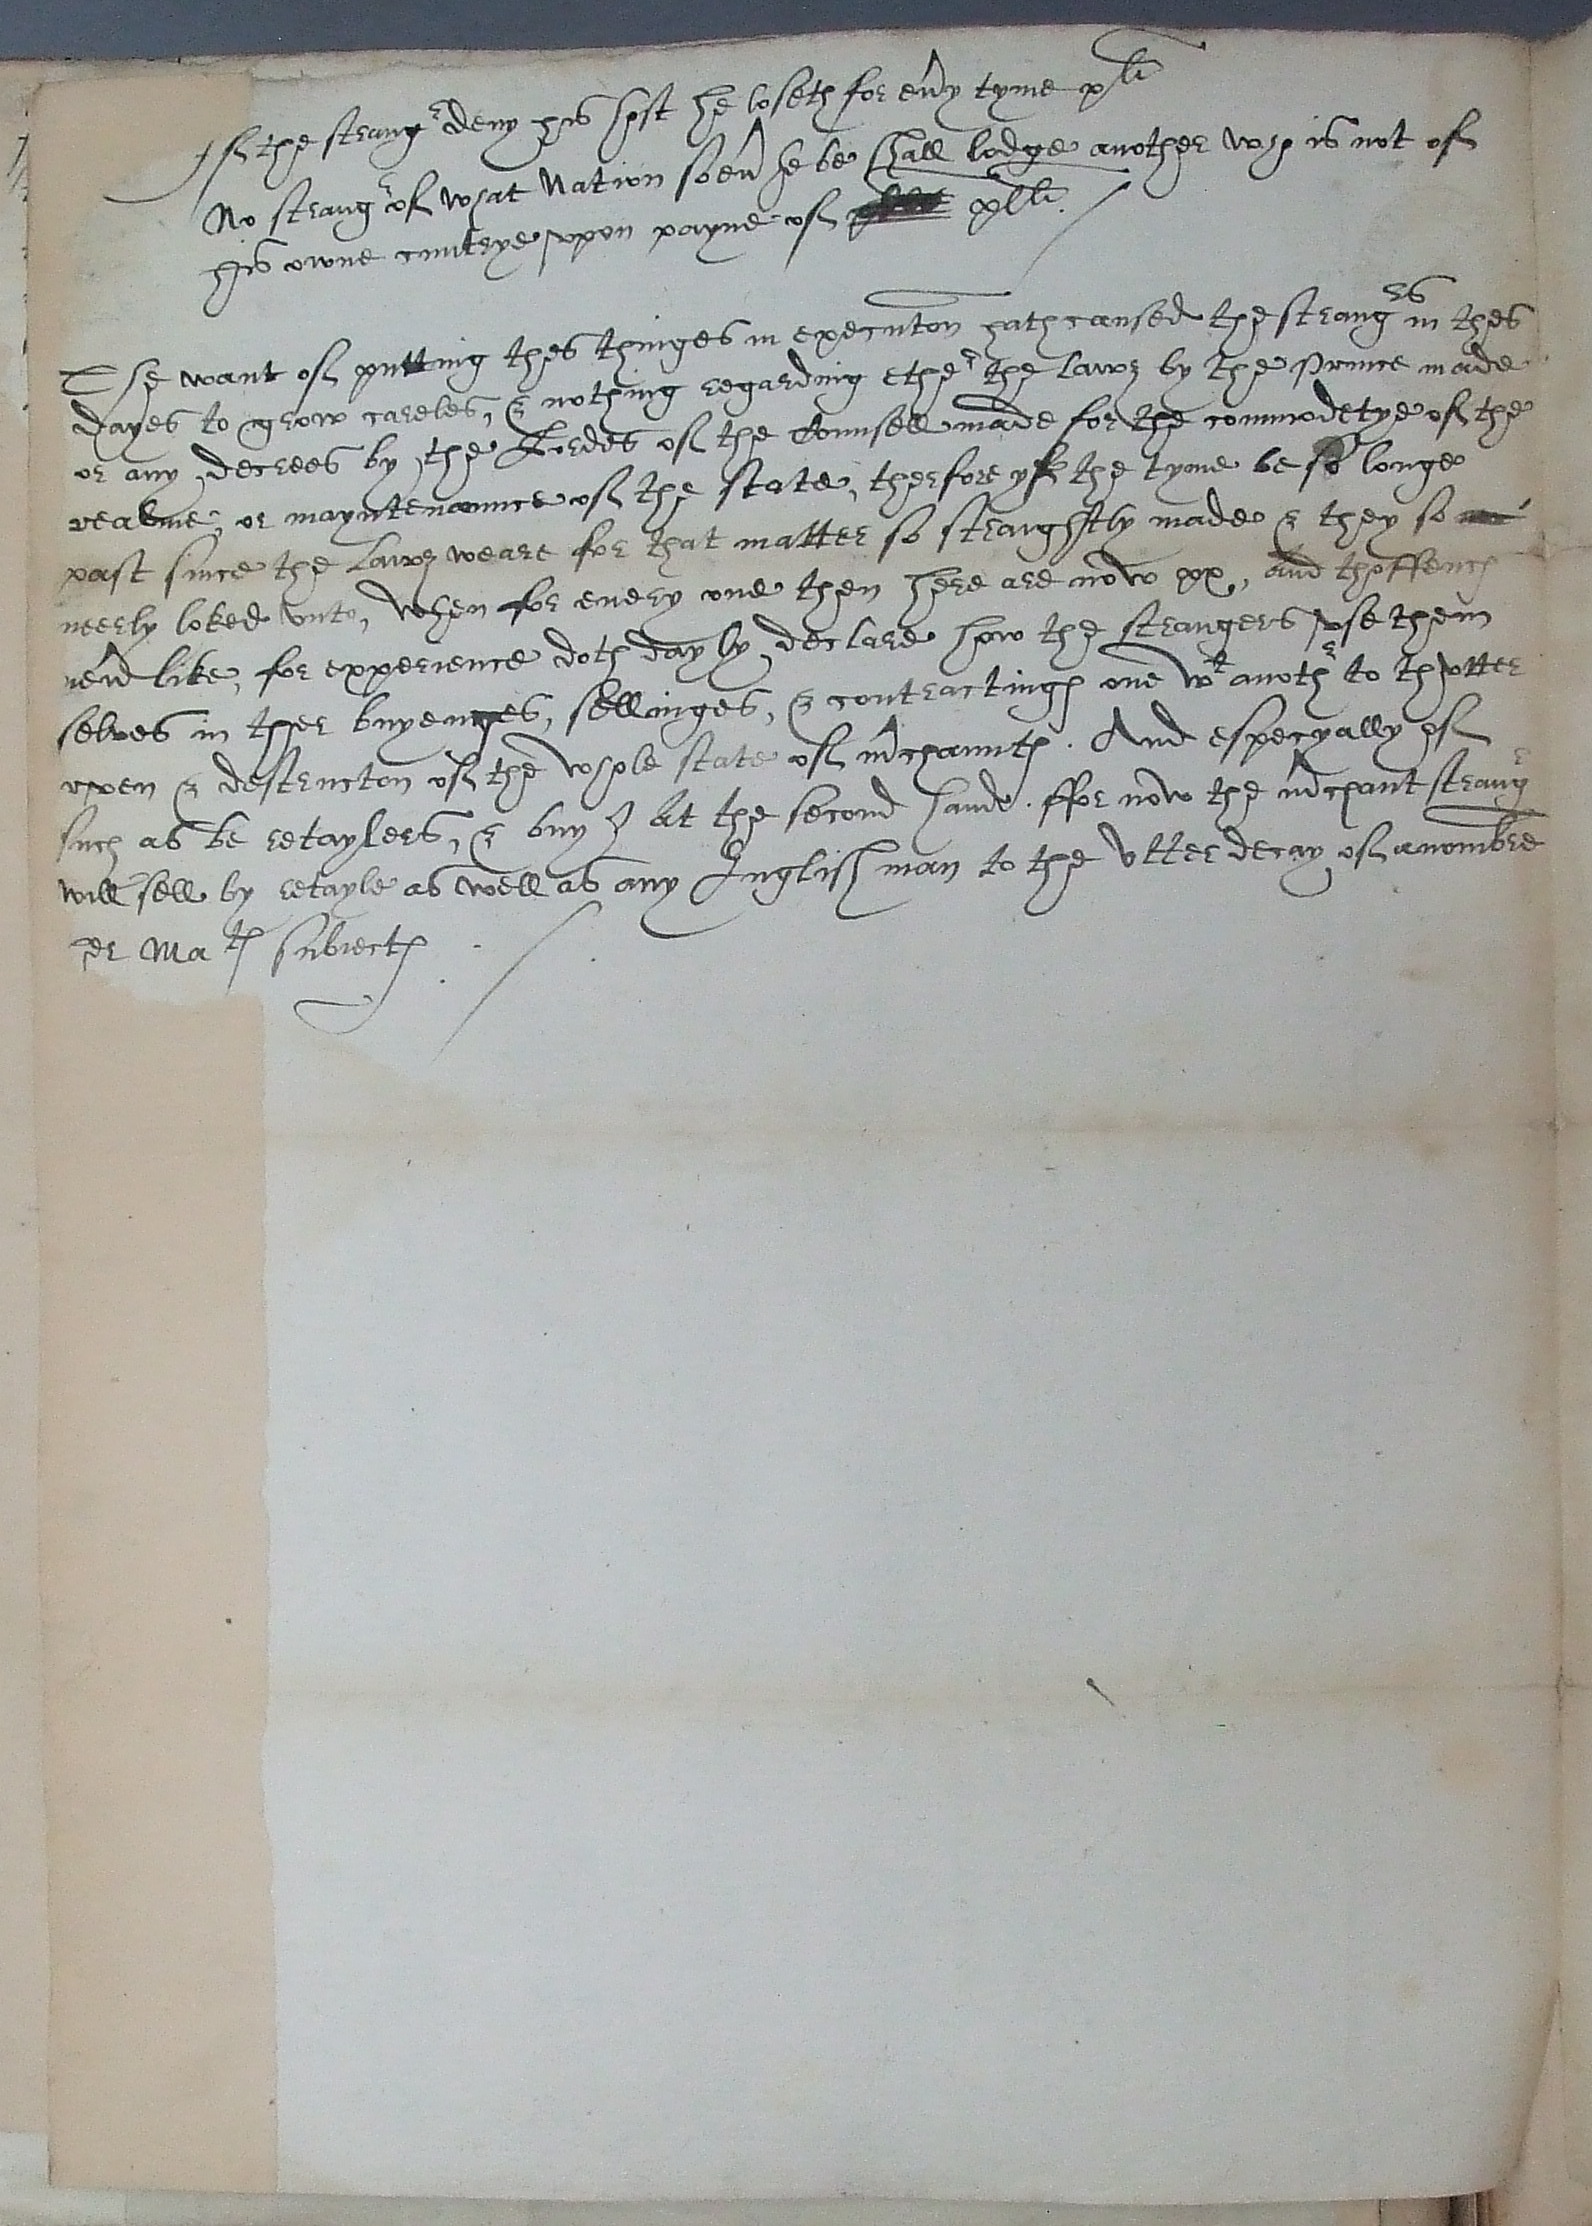 If the straungr deny his host he loseth for eũy tyme xli
No straungr of what Nation soeũ he be shall lodge another who is not of
his owne cuntrye vpon payne of xlli.
The want of putting thes thinges in execution hath caused the straungrs in thes
dayes to grow careles, & nothing regarding ether the lawes by the Prince made
or any decrees by the Lordes of the Counsell made for the commodetye of the
realme, or mayntenaunce of the state, therfore yf the tyme be so longe
past since the lawes weare for that matter so straightly made & they so
neerly loked vnto, when for euery one then here are now xx, and thoffences
neũ like, for experience doth dayly declare how the strangers vse them
selves in ther buyenges, sellinges, & contractinges one wt anothr to thutter
vpen & destruction of the whole state of m̃chauntes. And especyally of
such as be retaylers, & buy at the second hande. ffor now the m̃chant straungr
will sell by retayle as well as any Inglish man to the vtter decay of a nombre
er Maties subiectes